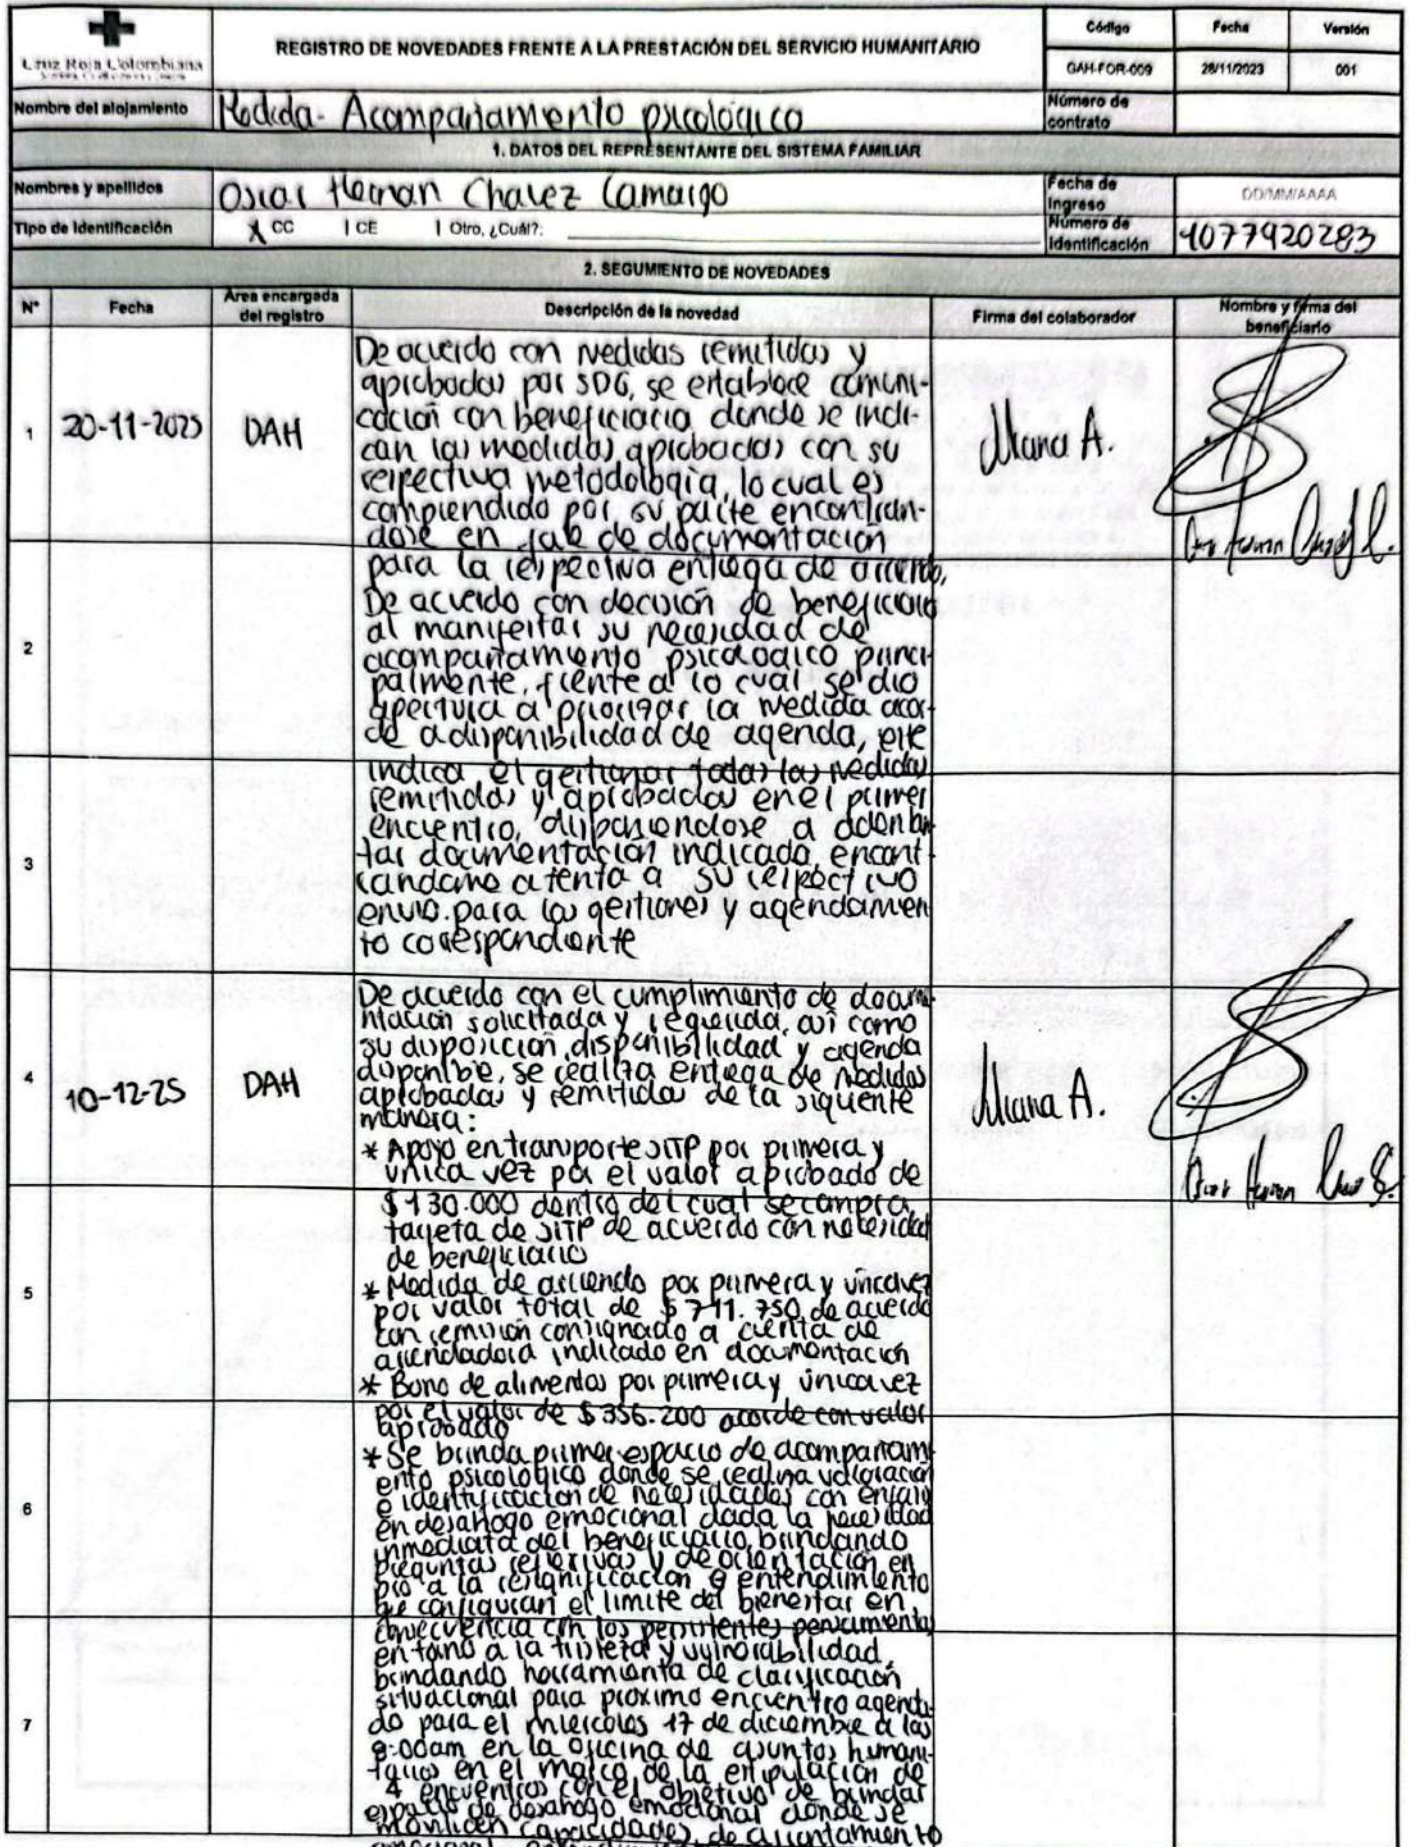 Cruz Roja Colombiana
REGISTRO DE NOVEDADES FRENTE A LA PRESTACIÓN DEL SERVICIO HUMANITARIO
Código
Fecha
Versión
GAH-FOR-009
28/11/2023
001
Nombre del alojamiento
Medida- Acompañamiento psicológico
Número de contrato
1. DATOS DEL REPRESENTANTE DEL SISTEMA FAMILIAR
Nombres y apellidos
Oscar Hernan Chavez Camargo
Fecha de Ingreso
DD/MM/AAAA
Tipo de Identificación
X CC | CE | Otro, ¿Cuál?:
Número de Identificación
1077920283
2. SEGUMIENTO DE NOVEDADES
N°
Fecha
Área encargada del registro
Descripción de la novedad
Firma del colaborador
Nombre y firma del beneficiario
1
20-11-2025
DAH
De acuerdo con medidas remitidas y
aprobadas por SDG, se establece comuni-
cación con beneficiaria donde se indi-
can las medidas aprobadas con su
respectiva metodologia, lo cual es
comprendido por su parte encontran-
dose en de documentación
para la respectiva entrega de acuerdo.
2
De acuerdo con decisión de beneficiario
al manifestar su necesidad de
acompañamiento psicologico princi
palmente, frente a lo cual se dio
apertura a priorizar la medida acor-
de a disponibilidad de agenda, este
3
indica el gestionar todas las medidas
remitidas y aprobadas en el primer
encuentro, disponiendose a adelan
tar documentación indicada encont-
randome atenta a su respectivo
envio para las gestiones y agendamien
to correspondiente
4
10-12-25
DAH
De acuerdo con el cumplimiento de docume
ntación solicitada y requerida, asi como
su disposición, disponibilidad y agenda
disponible, se realiza entrega de medidas
aprobadas y remitidas de la siguiente
manera:
* Apoyo en transporte SITP por primera y
unica vez por el valor aprobado de
$130.000 dentro del cual se compra
tarjeta de SITP de acuerdo con necesidad
de beneficiario
5
* Medida de arriendo por primera y única vez
por valor total de $711.750 de acuerdo
con remisión consignado a cuenta de
arrendadora indicado en documentación
* Bono de alimentos por primera y única vez
por el valor de $356.200 acorde con valor
aprobado
6
* Se brinda primer espacio de acompañam
iento psicológico donde se realiza valoración
e identificación de necesidades con enfasis
en desahogo emocional dada la necesidad
inmediata del beneficiario, brindando
preguntas reflexivas y de orientación en
pro a la resignificación e entendimiento
que configuran el limite del bienestar en
consecuencia con los persistentes pensamientos
en torno a la tristeza y vulnerabilidad,
brindando herramienta de clarificación
situacional para proximo encuentro agenda-
7
do para el miercoles 17 de diciembre a las
8:00am en la oficina de asuntos humani-
tarios en el marco de la estipulación de
4 encuentros con el objetivo de brindar
espacio de desahogo emocional donde se
movilicen capacidades de afrontamiento
Oscar Hernan
Oscar Hernan